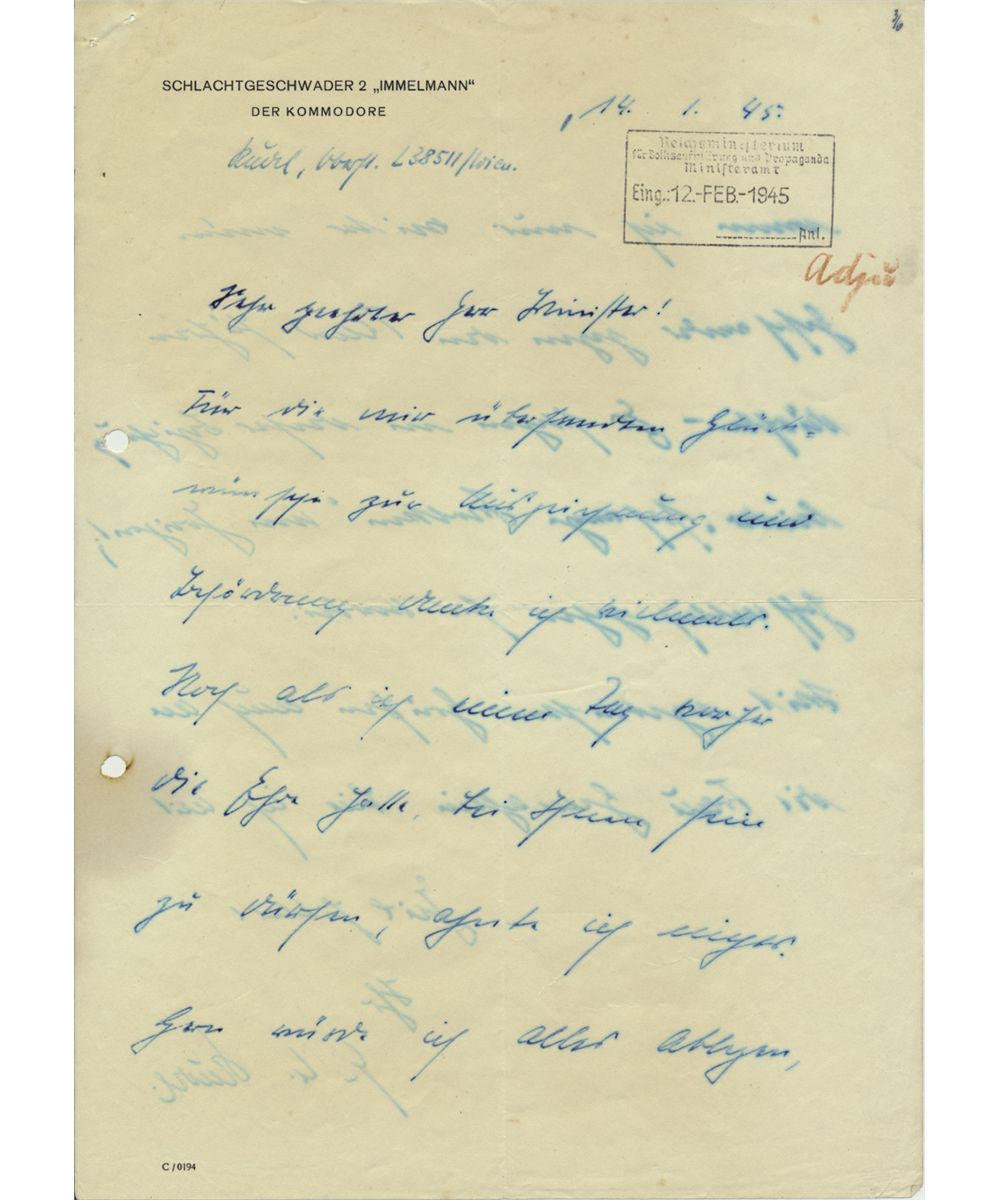 3/6
SCHLACHTGESCHWADER 2 „IMMELMANN“
DER KOMMODORE
14. 1. 45.
Rudel, Oberst. L38511/Wien.
Reichsministerium
für Volksaufklärung und Propaganda
Ministeramt
Eing.: 12.-FEB.-1945
Anl.
Adju
Sehr geehrter Herr Minister!
Für die mir übersandten Glück-
wünsche zur Auszeichnung und
Beförderung danke ich vielmals.
Noch als ich einen Tag vorher
die Ehre hatte, bei Ihnen sein
zu dürfen, ahnte ich nichts.
Gern würde ich alles ablegen,
C/0194